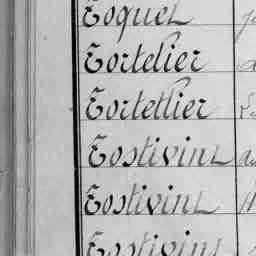 Toquet
Tortelier
Tortellier
Tostivint
Tostivint
Tostivint